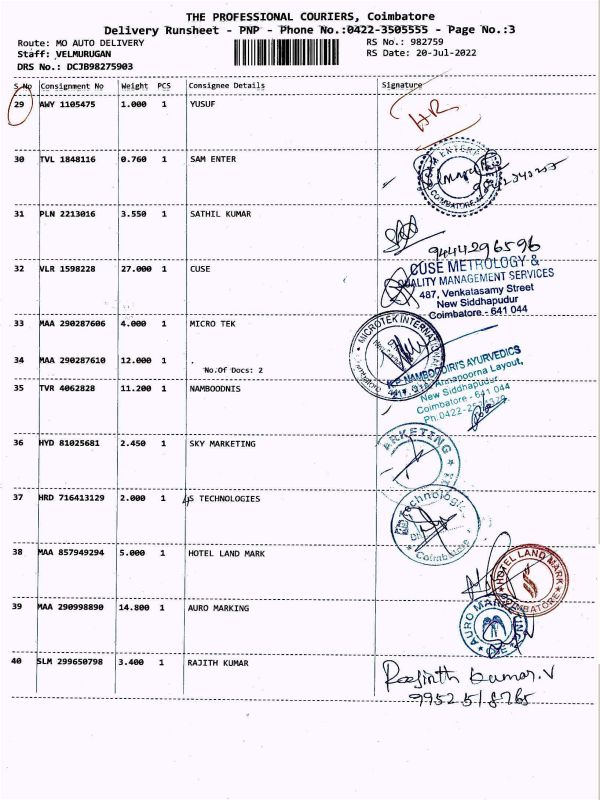 THE PROFESSIONAL COURIERS, Coimbatore
Delivery Runsheet - PNP - Phone No.:0422-3505555 - Page No.:3
Route: MO AUTO DELIVERY
RS No.: 982759
Staff: VELMURUGAN
RS Date: 20-Jul-2022
DRS No.: DCJB98275903
S.No Consignment No Weight PCS Consignee Details Signature
29 AWY 1105475 1.000 1 YUSUF
HR
30 TVL 1848116 0.760 1 SAM ENTER
COIMBATORE
31 PLN 2213016 3.550 1 SATHIL KUMAR
9444296596
32 VLR 1598228 27.000 1 CUSE
CUSE METROLOGY &
QUALITY MANAGEMENT SERVICES
487, Venkatasamy Street
New Siddhapudur
Coimbatore - 641 044
33 MAA 290287606 4.000 1 MICRO TEK
MICROTEK INTERNATIONAL
34 MAA 290287610 12.000 1
No.Of Docs: 2
35 TVR 4062828 11.200 1 NAMBOODNIS
NAMBOODIRI'S AYURVEDICS
Annapoorna Layout,
New Siddhapudur
Coimbatore - 641 044
36 HYD 81025681 2.450 1 SKY MARKETING
RKETING
37 HRD 716413129 2.000 1 4S TECHNOLOGIES
Technologies
Coimbatore
38 MAA 857949294 5.000 1 HOTEL LAND MARK
HOTEL LAND MARK
COIMBATORE
39 MAA 290998890 14.800 1 AURO MARKING
AURO MARKETING
CBE
40 SLM 299650798 3.400 1 RAJITH KUMAR
Rajinth Kumar.V
9952518765